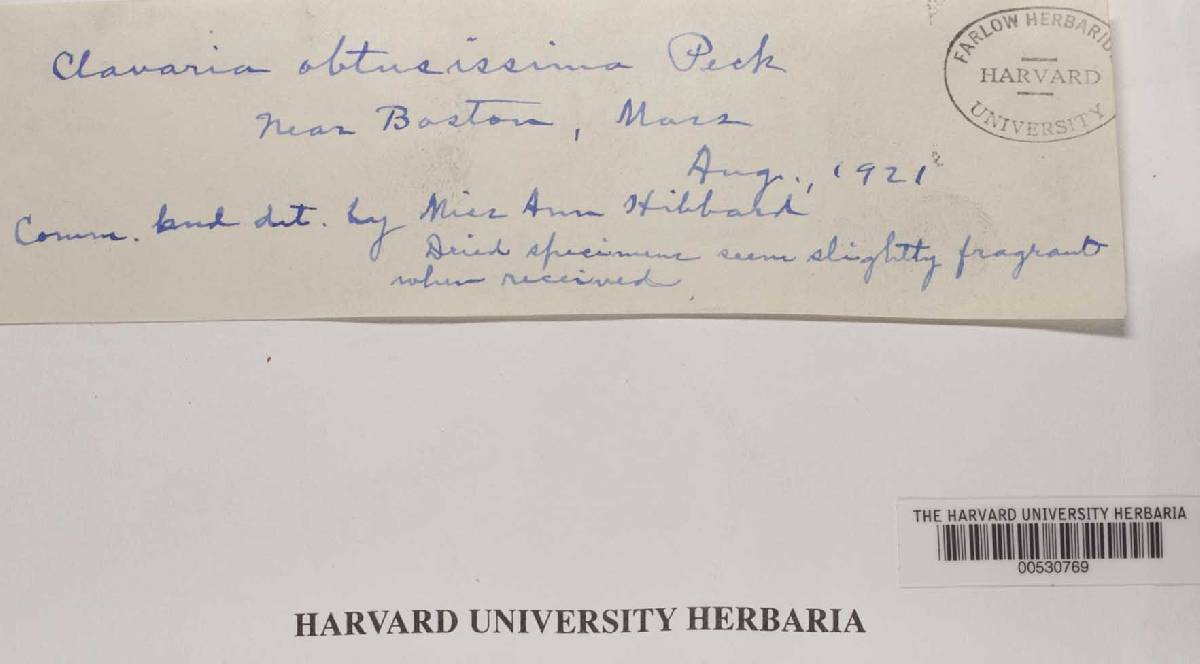 Clavaria obtusissima Peck
near Boston, Mass
Aug., 1921
Comm. and det. by Miss Ann Hibbard
Dried specimens seem slightly fragrant
when received
FARLOW HERBARIU
HARVARD
UNIVERSITY
THE HARVARD UNIVERSITY HERBARIA
00530769
HARVARD UNIVERSITY HERBARIA